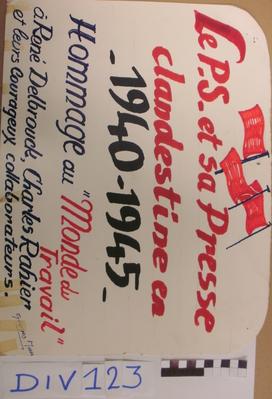 Le P.S. et sa Presse
clandestine en
- 1940-1945 -
Hommage au "Monde du
Travail"
à René Delbrouck, Charles Rahier
et leurs courageux collaborateurs.
DIV 123